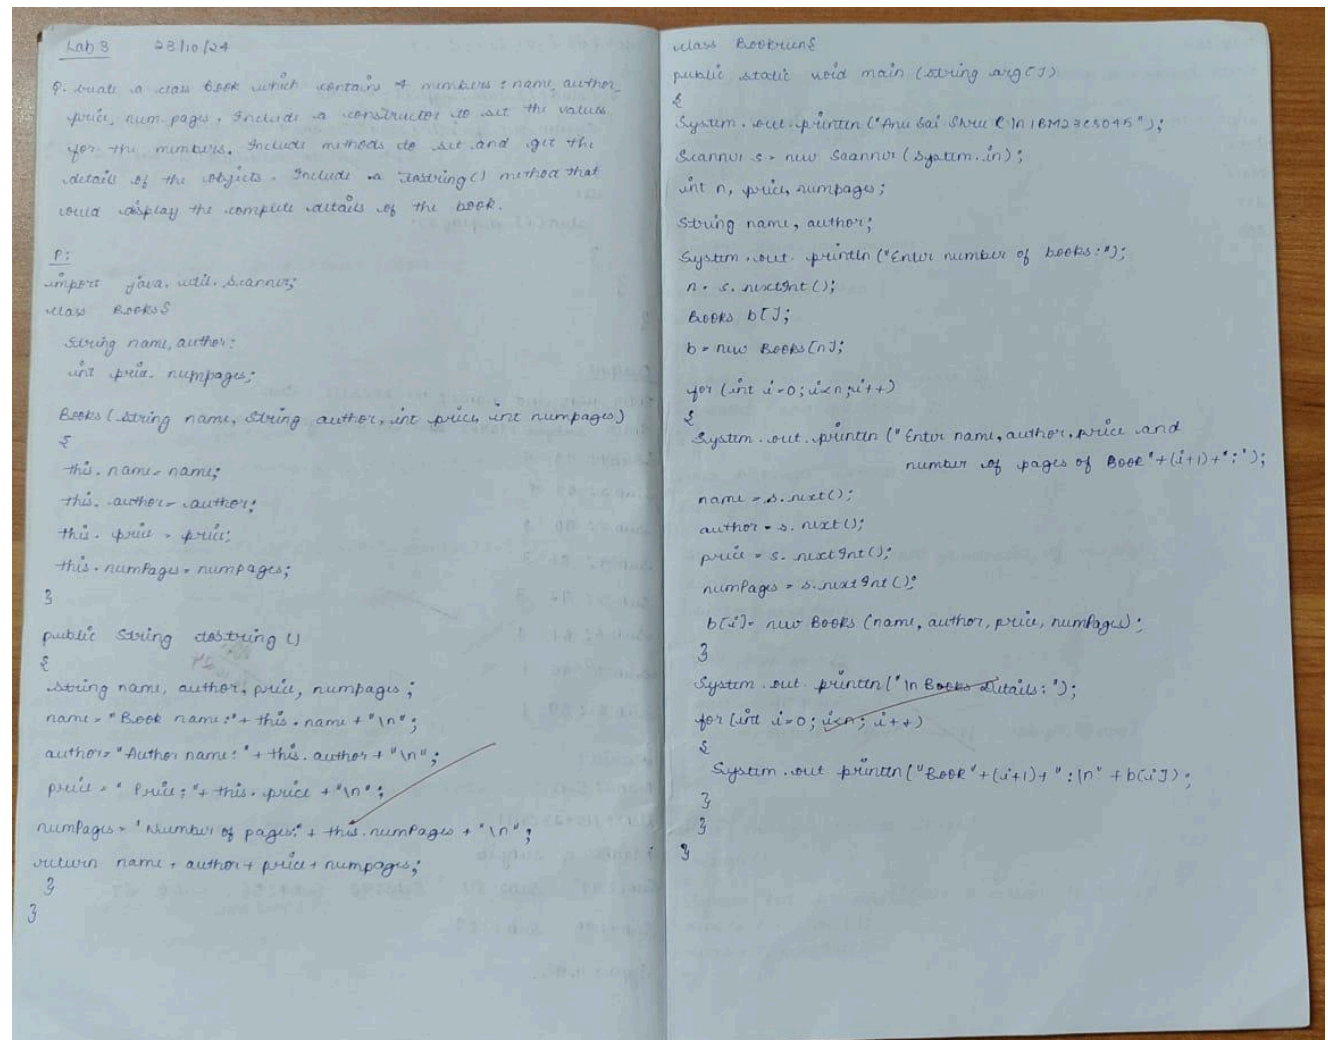 Lab 3 23/10/24
Q. Create a class Book which contains 4 members : name, author,
price, num-pages. Include a constructor to set the values
for the members. Include methods to set and get the
details of the objects. Include a toString() method that
could display the complete details of the book.
P:
import java.util.Scanner;
class Books{
String name, author;
int price, numpages;
Books(String name, String author, int price, int numpages)
{
this.name = name;
this.author = author;
this.price = price;
this.numPages = numpages;
}
public String toString()
{
String name, author, price, numpages;
name = "Book name:" + this.name + "\n";
author = "Author name:" + this.author + "\n";
price = "Price:" + this.price + "\n";
numPages = "Number of pages:" + this.numPages + "\n";
return name + author + price + numpages;
}
}
class Bookrun{
public static void main (String arg[])
{
System.out.println("Anu Sai Shru C \n 1BM23CS045");
Scanner s = new Scanner(System.in);
int n, price, numpages;
String name, author;
System.out.println("Enter number of books:");
n = s.nextInt();
Books b[];
b = new Books[n];
for (int i=0; i<n; i++)
{
System.out.println("Enter name, author, price and
number of pages of Book"+(i+1)+":");
name = s.next();
author = s.next();
price = s.nextInt();
numPages = s.nextInt();
b[i] = new Books (name, author, price, numPages);
}
System.out.println("\n Books Details:");
for (int i=0; i<n; i++)
{
System.out println("Book"+(i+1)+":\n"+b[i]);
}
}
}